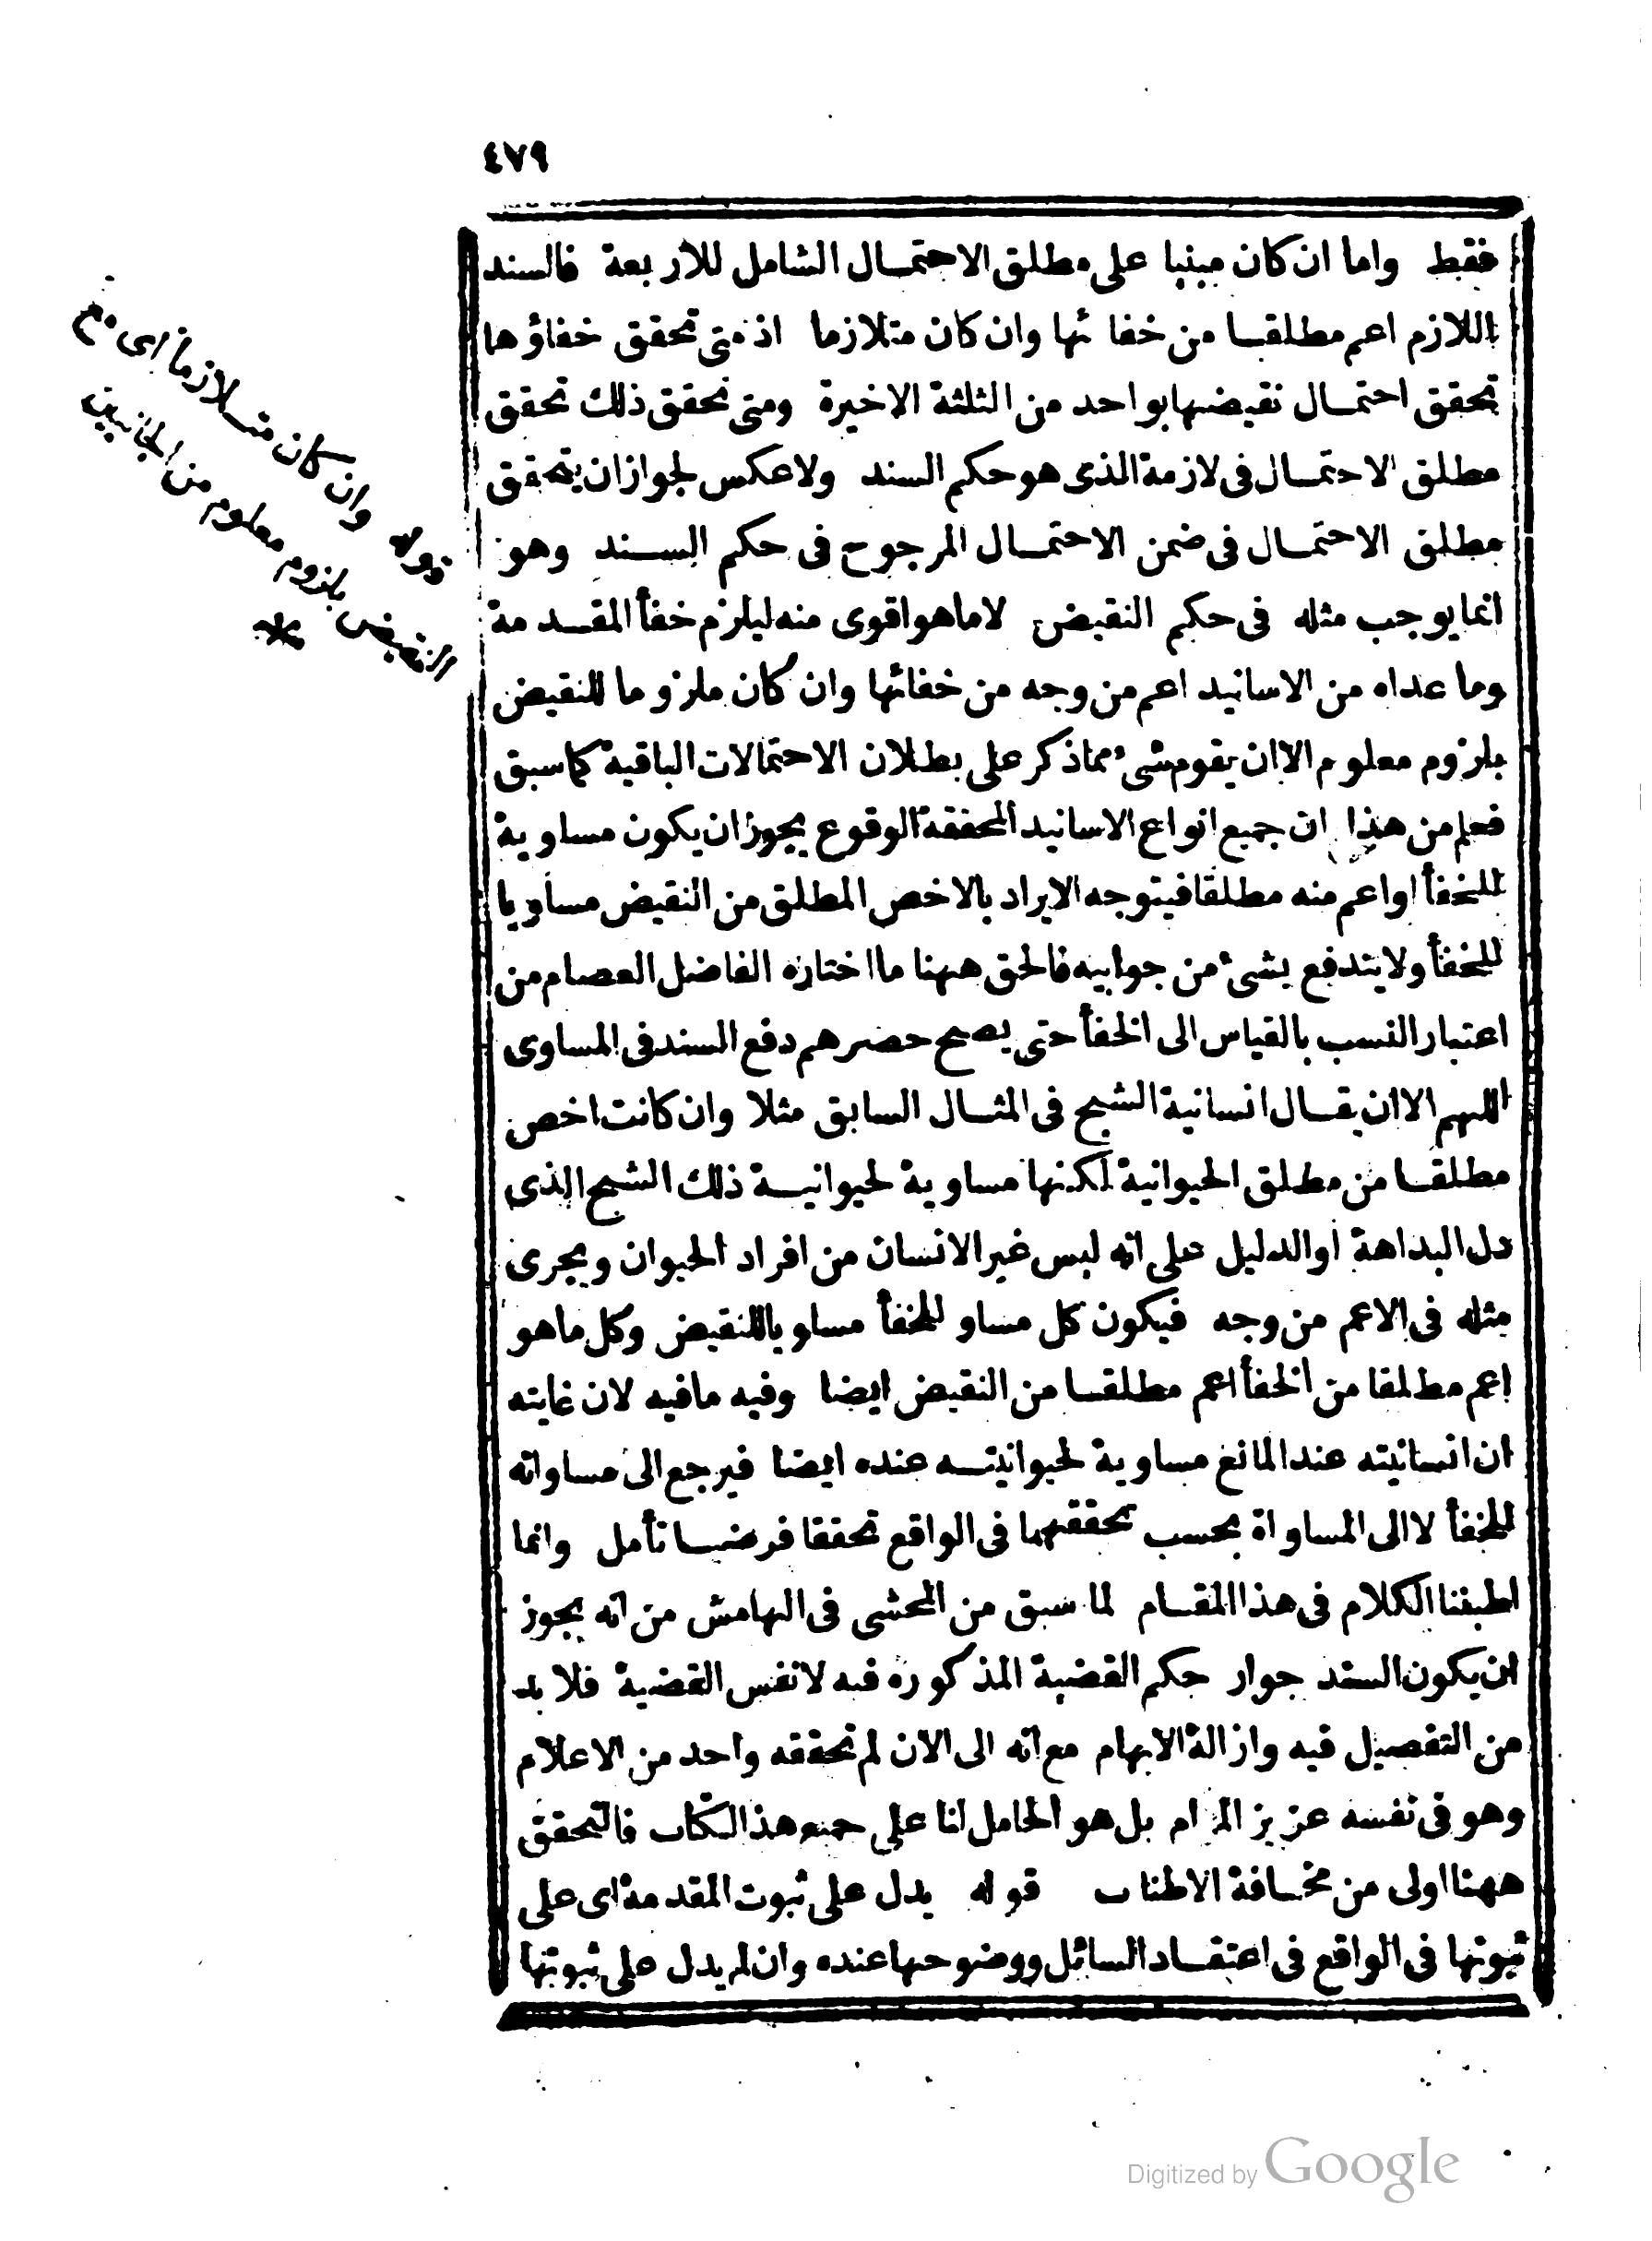 ٤٧٩
فقط واما ان كان مبنيا على مطلق الاحتمال الشامل للاربعة فالسند
اللازم اعم مطلقا من خفائها وان كان متلازما اذ متى تحقق خفاؤها
تحقق احتمال نقيضها بواحد من الثلثة الاخيرة ومتى تحقق ذلك تحقق
مطلق الاحتمال فى لازمة الذى هو حكم السند ولا عكس لجواز ان يتحقق
مطلق الاحتمال فى ضمن الاحتمال المرجوح فى حكم السند وهو
انما يوجب مثله فى حكم النقيض لا ما هو اقوى منه ليلزم خفأ المقدمة
وما عداه من الاسانيد اعم من وجه من خفائها وان كان ملزوما للنقيض
بلزوم معلوم الا ان يقوم شىء مما ذكر على بطلان الاحتمالات الباقية كما سبق
فعلم من هذا ان جميع انواع الاسانيد المحققة الوقوع يجوز ان يكون مساوية
للخفأ او اعم منه مطلقا فيتوجه الايراد بالاخص المطلق من النقيض مساويا
للخفأ ولا يندفع بشىء من جوابيه فالحق ههنا ما اختاره الفاضل العصام من
اعتبار النسب بالقياس الى الخفأ حتى يصح حصرهم دفع السند فى المساوى
اللهم الا ان يقال انسانية الشبح فى المثال السابق مثلا وان كانت اخص
مطلقا من مطلق الحيوانية لكنها مساوية لحيوانية ذلك الشبح الذى
دل البداهة او الدليل على انه ليس غير الانسان من افراد الحيوان ويجرى
مثله فى الاعم من وجه فيكون كل مساو للخفأ مساويا للنقيض وكل ما هو
اعم مطلقا من الخفأ اعم مطلقا من النقيض ايضا وفيه ما فيه لان غايته
ان انسانيته عند المانع مساوية لحيوانيته عنده ايضا فيرجع الى مساواته
للخفأ لا الى المساواة بحسب تحققهما فى الواقع تحققا فرضيا تأمل وانما
اطنبنا الكلام فى هذا المقام لما سبق من المحشى فى الهامش من انه يجوز
ان يكون السند جواز حكم القضية المذكوره فيه لا نفس القضية فلا بد
من التفصيل فيه وازالة الابهام مع انه الى الآن لم تحققه واحد من الاعلام
وهو فى نفسه عزيز المرام بل هو الحامل لنا على جمع هذا الكتاب فالتحقق
ههنا اولى من مخافة الاطناب قوله يدل على ثبوت المقدمة اى على
ثبوتها فى الواقع فى اعتقاد السائل ووضوحها عنده وان لم يدل على ثبوتها
قوله وان كان متلازما اى مع
النقيض بلزوم معلوم من الجانبين
*
Digitized by Google